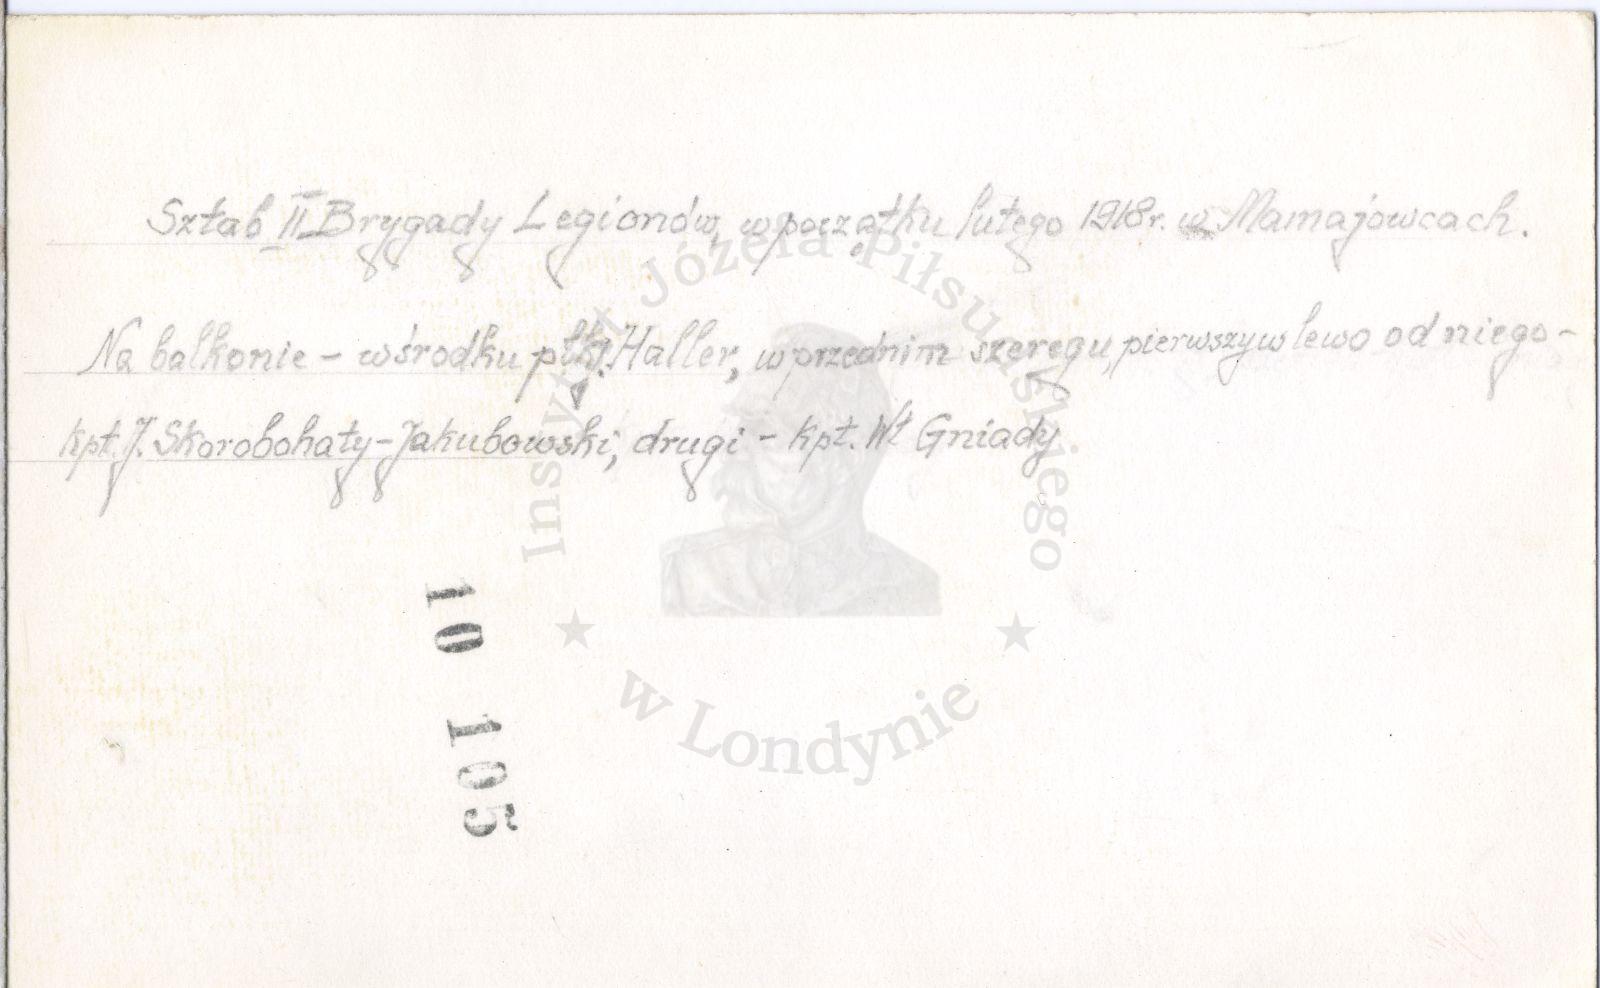 Sztab II Brygady Legionów, w początku lutego 1918 r. w Mamajowcach.
Na balkonie – w środku płk J. Haller, w przednim szeregu, pierwszy w lewo od niego –
kpt. J. Skorobohaty-Jakubowski, drugi – kpt. Wł Gniady
Instytut Józefa Piłsudskiego
w Londynie
10 105